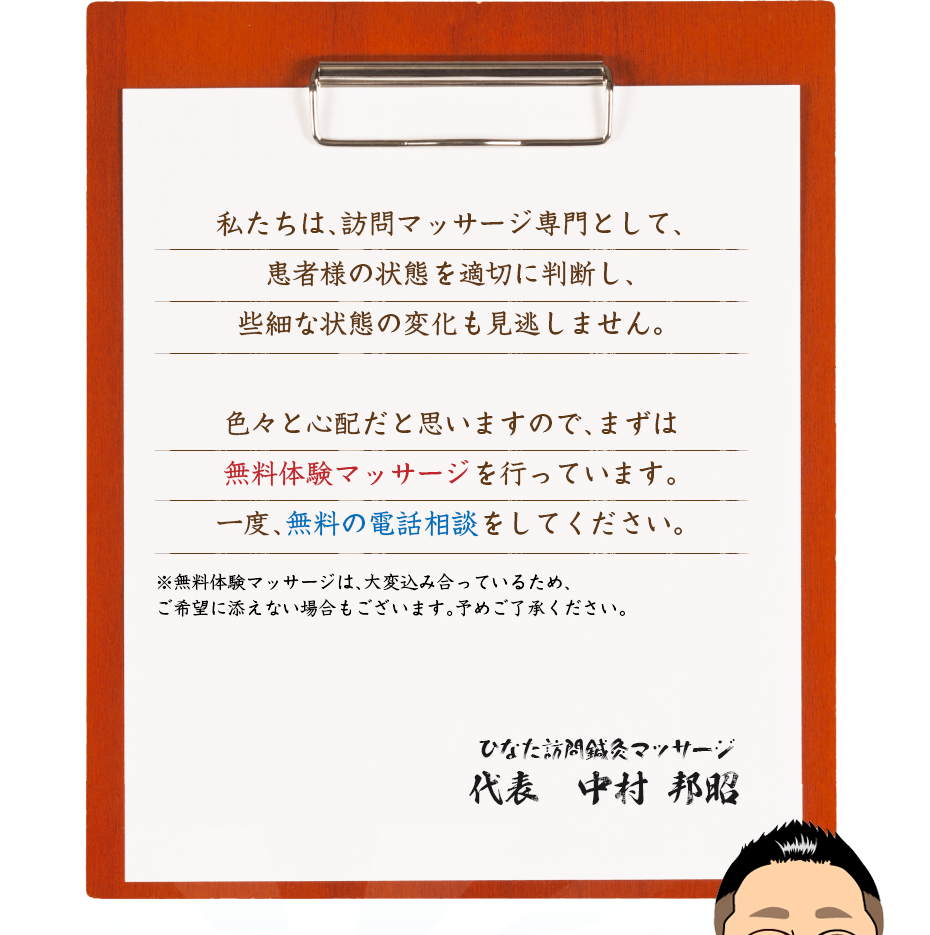 私たちは、訪問マッサージ専門として、
患者様の状態を適切に判断し、
些細な状態の変化も見逃しません。
色々と心配だと思いますので、まずは
無料体験マッサージを行っています。
一度、無料の電話相談をしてください。
※無料体験マッサージは、大変込み合っているため、
ご希望に添えない場合もございます。予めご了承ください。
ひなた訪問鍼灸マッサージ
代表　中村 邦昭